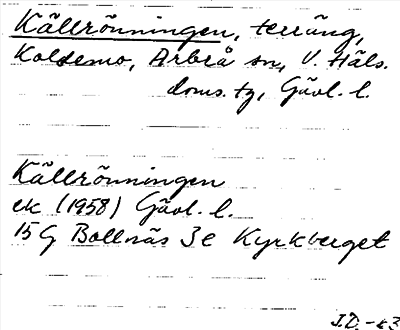 Källrönningen, terräng,
Koldemo, Arbrå sn, V. Häls.
doms. tg, Gävl. l.
Källrönningen
ek (1958) Gävl. l.
15 G Bollnäs 3e Kyrkberget
J.D. -63